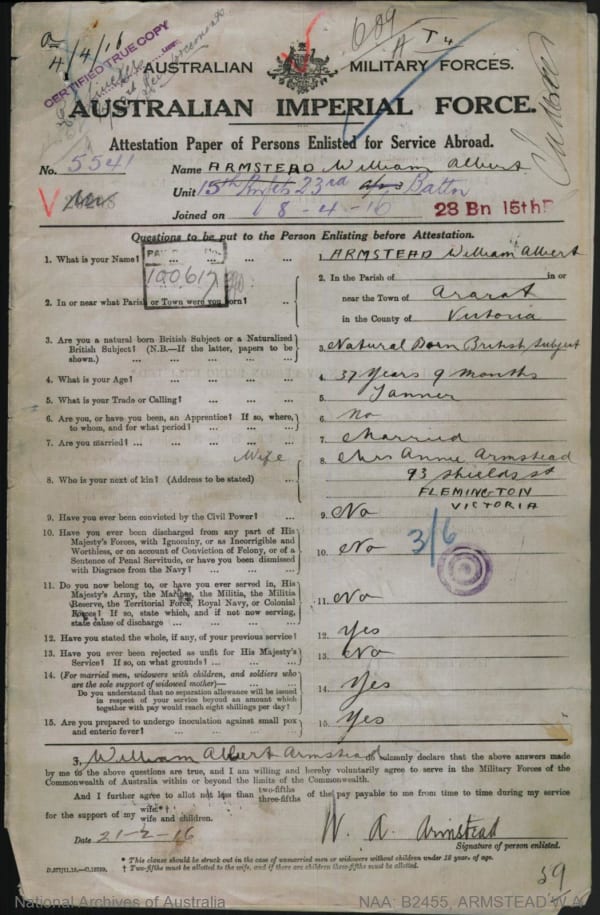 4/4/16
CERTIFIED TRUE COPY
689
A T4
AUSTRALIAN MILITARY FORCES.
AUSTRALIAN IMPERIAL FORCE.
Attestation Paper of Persons Enlisted for Service Abroad.
No. 5541 Name ARMSTEAD William Albert
Unit 15th Rnfts 23rd Battn
Joined on 8-4-16 23 Bn 15th
Questions to be put to the Person Enlisting before Attestation.
1. What is your Name? ... 1. ARMSTEAD William Albert
100617
2. In or near what Parish or Town were you born? .. 2. In the Parish of in or
near the Town of Ararat
in the County of Victoria
3. Are you a natural born British Subject or a Naturalized
British Subject? (N.B.—If the latter, papers to be
shown.) 3. Natural Born British Subject
4. What is your Age? 4. 37 Years 9 months
5. What is your Trade or Calling? 5. Tanner
6. Are you, or have you been, an Apprentice? If so, where,
to whom, and for what period? 6. No
7. Are you married? 7. Married
Wife
8. Who is your next of kin? (Address to be stated) 8. Mrs Annie Armstead
93 Shields st
FLEMINGTON
VICTORIA
9. Have you ever been convicted by the Civil Power? 9. No
10. Have you ever been discharged from any part of His
Majesty's Forces, with Ignominy, or as Incorrigible and
Worthless, or on account of Conviction of Felony, or of a
Sentence of Penal Servitude, or have you been dismissed
with Disgrace from the Navy? 10. No 3/6
11. Do you now belong to, or have you ever served in, His
Majesty's Army, the Marines, the Militia, the Militia
Reserve, the Territorial Force, Royal Navy, or Colonial
Forces? If so, state which, and if not now serving,
state cause of discharge 11. No
12. Have you stated the whole, if any, of your previous service? 12. Yes
13. Have you ever been rejected as unfit for His Majesty's
Service? If so, on what grounds? 13. No
14. (For married men, widowers with children, and soldiers who
are the sole support of widowed mother)—
Do you understand that no separation allowance will be issued
in respect of your service beyond an amount which
together with pay would reach eight shillings per day? 14. Yes
15. Are you prepared to undergo inoculation against small pox
and enteric fever? 15. Yes
I, William Albert Armstead do solemnly declare that the above answers made
by me to the above questions are true, and I am willing and hereby voluntarily agree to serve in the Military Forces of the
Commonwealth of Australia within or beyond the limits of the Commonwealth.
And I further agree to allot not less than two-fifths three-fifths of the pay payable to me from time to time during my service
for the support of my wife*† wife and children.
Date 21-2-16 W. A. Armstead
Signature of person enlisted.
* This clause should be struck out in the case of unmarried men or widowers without children under 18 year. of age.
† Two-fifths must be allotted to the wife, and if there are children three-fifths must be allotted.
59
National Archives of Australia NAA: B2455, ARMSTEAD W A